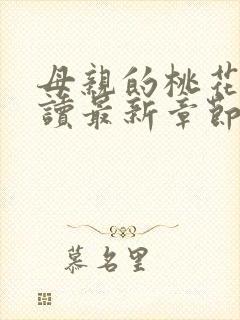 母親的桃花
讀最新章節
慕名里